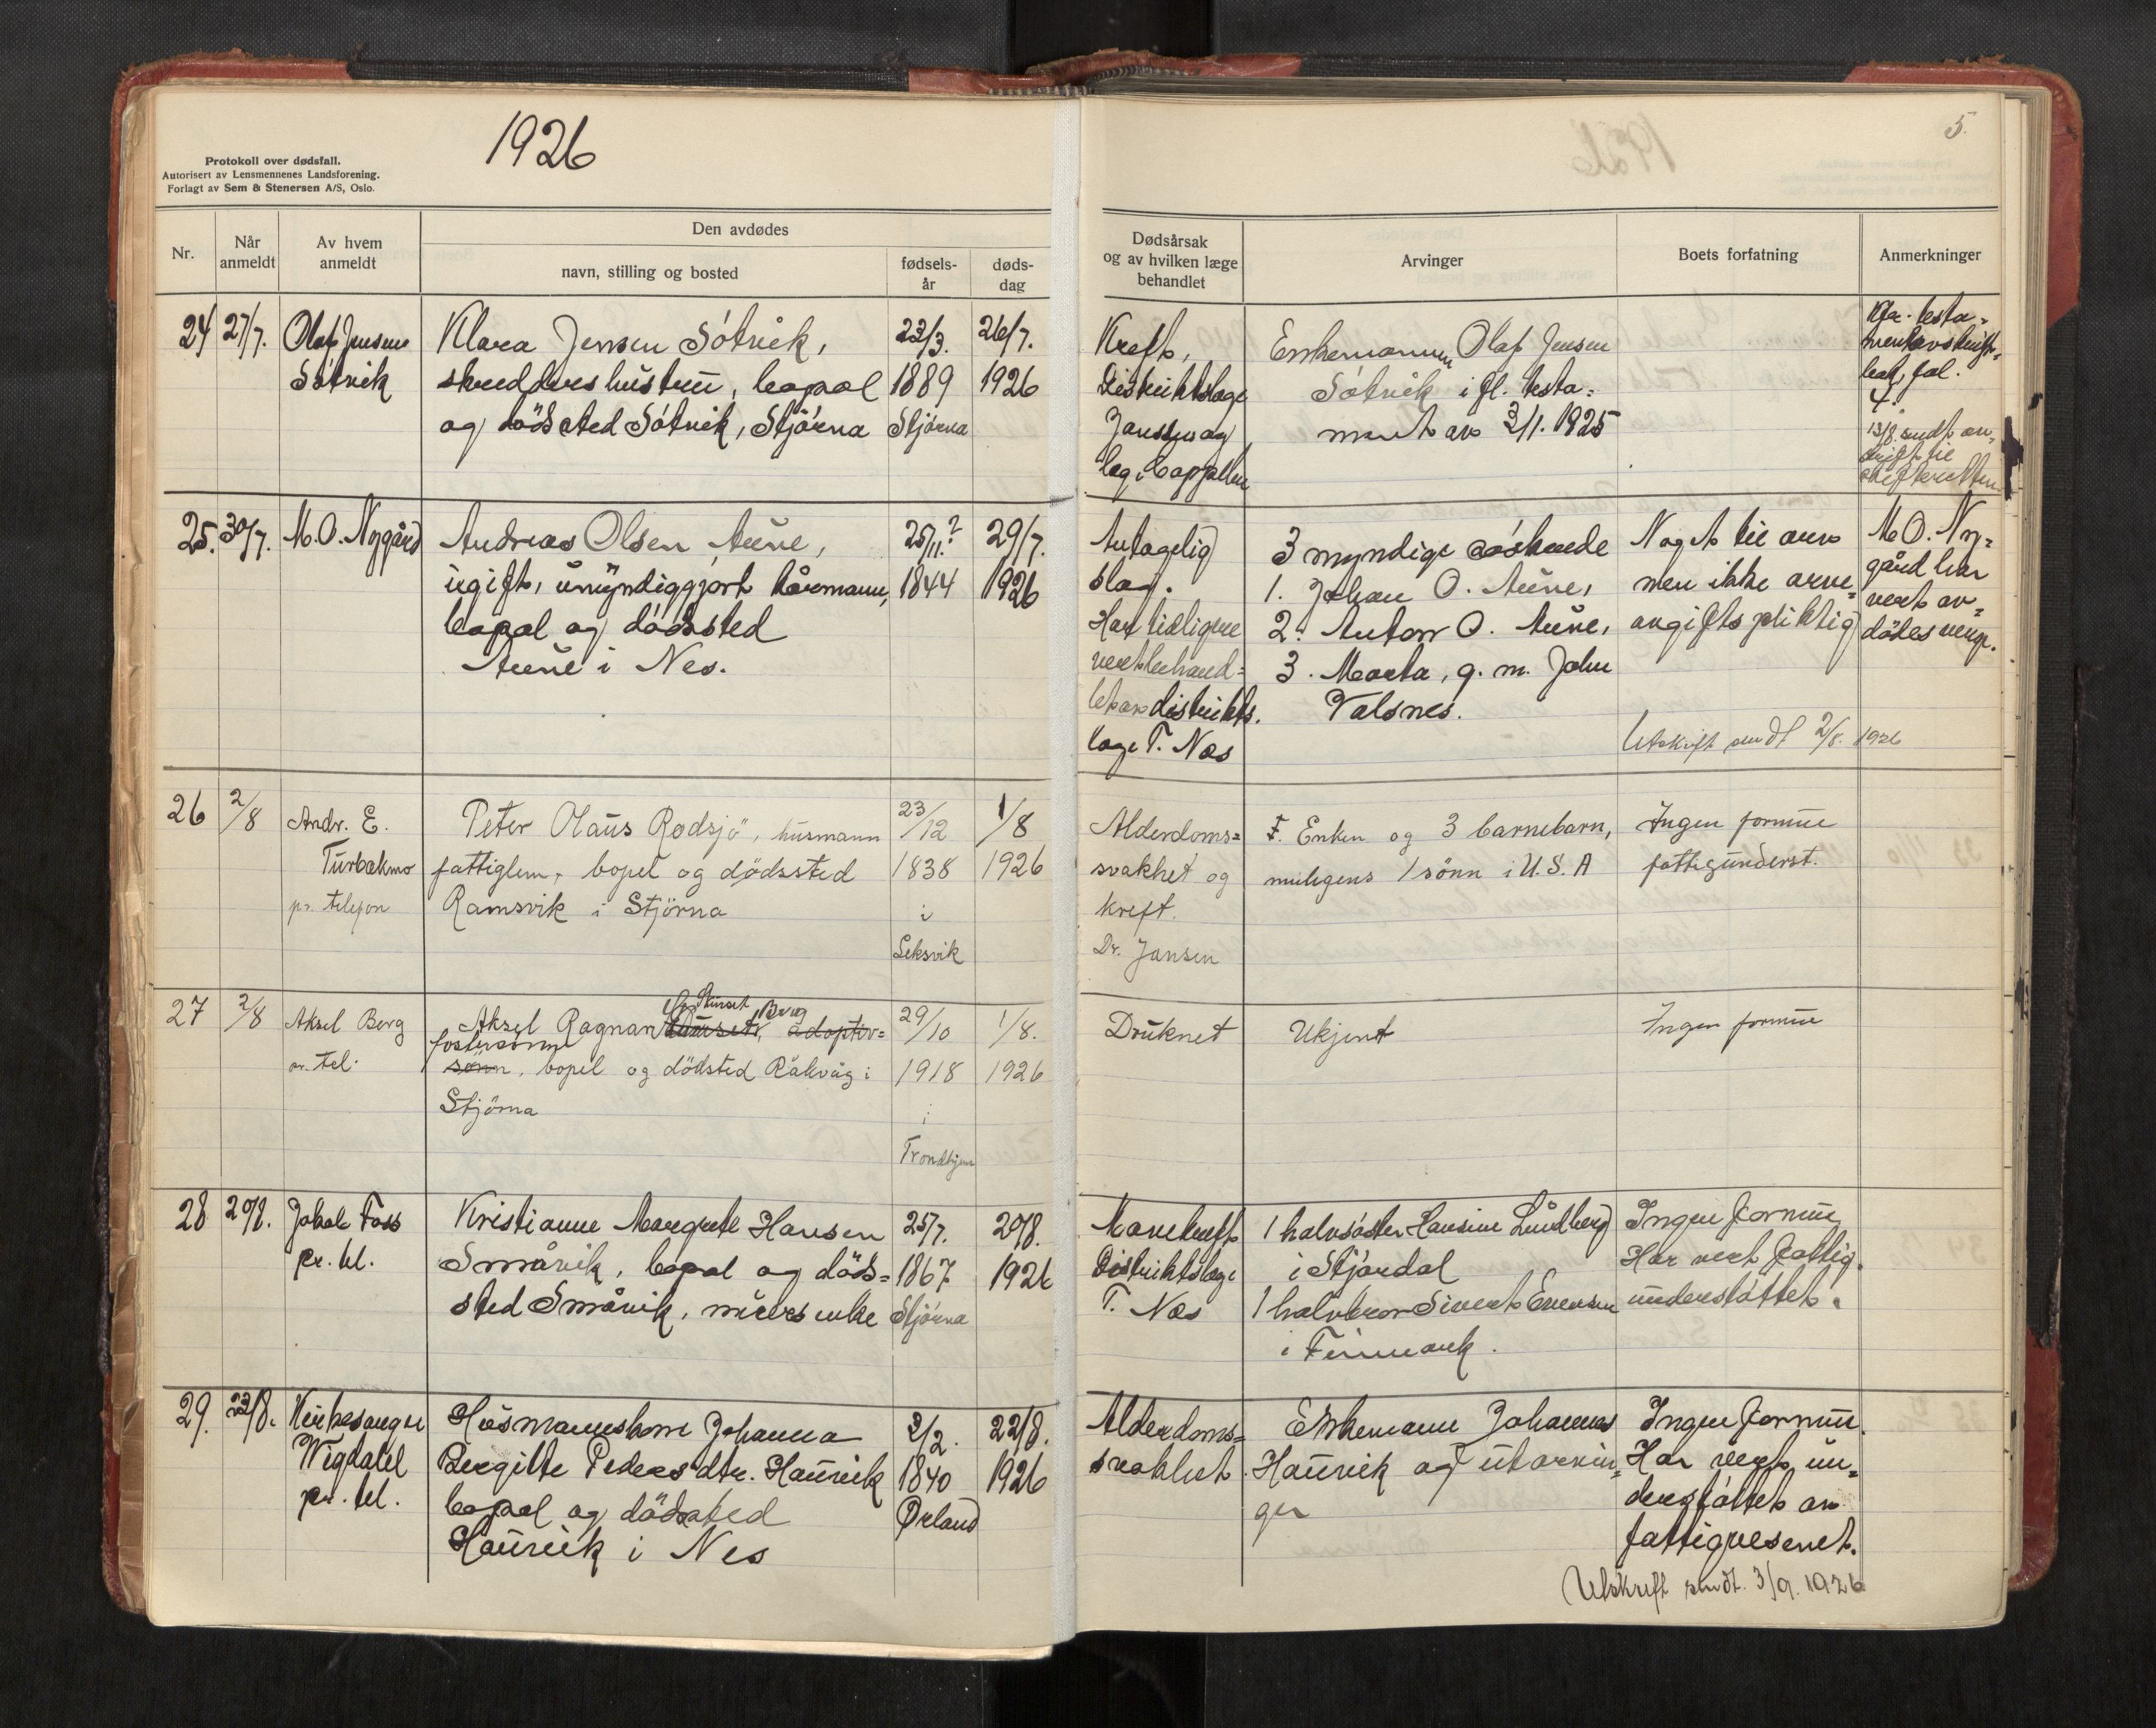 1926
5.
Protokoll over dødsfall.
Autorisert av Lensmennenes Landsforening.
Forlagt av Sem & Stenersen A/S, Oslo.
Nr.
Når anmeldt
Av hvem anmeldt
Den avdødes
navn, stilling og bosted
fødsels-år
døds-dag
Dødsårsak og av hvilken læge behandlet
Arvinger
Boets forfatning
Anmerkninger
24 27/7. Olaf Jensen Søtvik
Klara Jensen Søtvik,
skreddershustru, bopæl
og dödssted Søtvik, Stjørna
22/3. 1889 Stjørna
26/7. 1926
Kreft,
Distriktslæge
Jansen og
læg. Cappelen
Enkemannen Olaf Jensen
Søtvik i fl. testa-
ment av 3/11. 1925
testa-
mentavskrift-
fol.
4.
13/8. sendt
skifteretten
25. 30/7. M. O. Nygård
Andreas Olsen Aune,
ugift, umyndiggjort kårmann,
bopæl og dödssted
Aune i Nes.
25/11.? 1844
29/7. 1926
Antagelig
slag.
Har tidligere
vert behand-
let av distrikts-
læge T. Næs
3 myndige søskende
1. Johan O. Aune,
2. Anton O. Aune,
3. Marta, g. m. John
Valsnes.
Noget til arv
men ikke arve-
avgiftspliktig
Utskrift sendt 2/8. 1926
M. O. Ny-
gård har
vert av-
dödes verge.
26 2/8 Andr. E.
Turbakmo
pr. telefon
Peter Olaus Rødsjö, husmann
fattiglem, bopel og dødssted
Ramsvik i Stjörna
23/12 1838 i Leksvik
1/8 1926
Alderdoms-
svakhet og
kreft.
Dr. Jansen
Enken og 3 barnebarn,
muligens 1 sönn i U.S.A
Ingen formue
fattigunderst.
27 2/8 Aksel Berg
pr. tel.
Sturset Berg
Aksel Ragnar adoptiv-
fostersönn
sönn, bopel og dödsted Råkvåg i
Stjörna
29/10 1918 i Trondhjem
1/8. 1926
Druknet
Ukjent
Ingen formue
28 20/8. Jakob Foss
pr. tel.
Kristianne Margrete Hansen
Småvik, bopæl og döds-
sted Småvik, murers enke
25/7. 1867 Stjørna
20/8. 1926
Mavekreft
Distriktslæge
T. Næs
1 halvsøster Hansine Lundberg
i Stjørdal
1 halvbror Sivert Evensen
i Finmark.
Ingen formue
Har vert fattig-
understøttet.
29. 23/8. Kirkesanger
Wigdahl
pr. tel.
Husmannskone Johanna
Bergitte Pedersdtr. Haurvik
bopæl og dödssted
Haurvik i Nes
2/2. 1840 Ørland
22/8. 1926
Alderdoms-
svakhet
Enkemann Johannes
Haurvik og 7 utarvin-
ger
Ingen formue.
Har vert un-
derstøttet av
fattigvesenet.
Utskrift sendt. 3/9. 1926